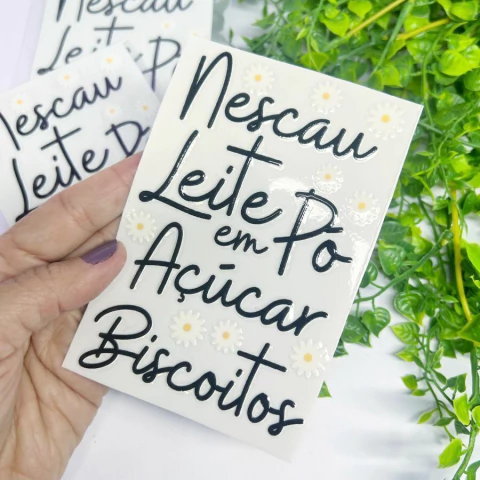 Nescau
Leite
Nescau
Leite Pó
Nescau
Leite em Pó
Açúcar
Biscoitos